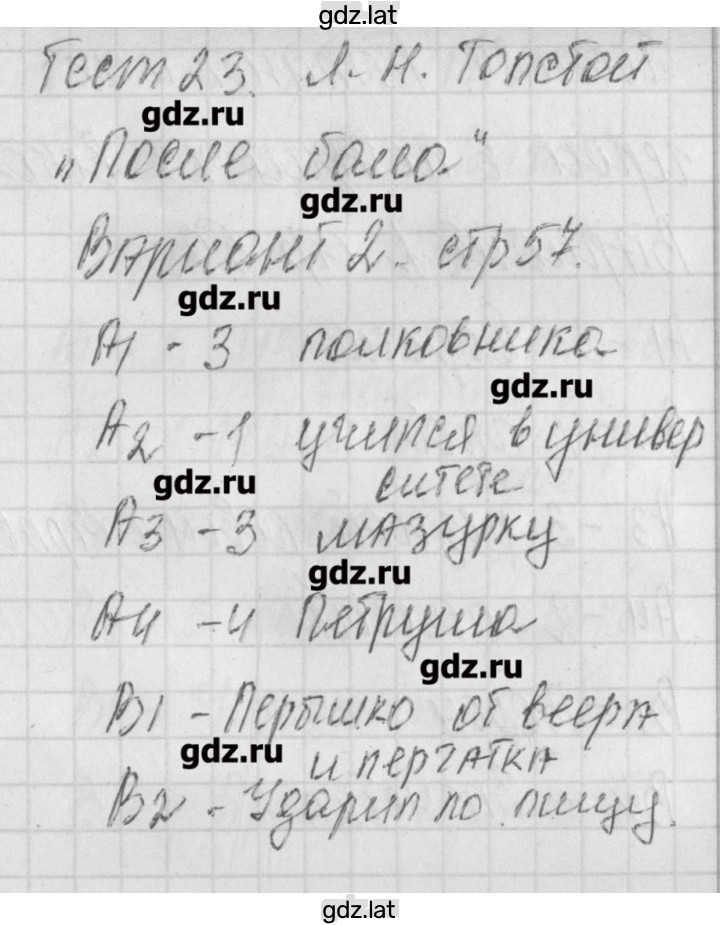 gdz.lat
Тест 23. Л. Н. Толстой
gdz.ru
"После бала"
gdz.ru
Вариант 2. стр 57.
gdz.ru
А1 - 3 полковника
gdz.ru
А2 - 1 учился в универ
gdz.ru
ситете
А3 - 3 мазурку
gdz.ru
А4 - 4 Петруша
gdz.ru
В1 - Пёрышко от веера
gdz.ru
и перчатка
В2 - Ударил по лицу.
gdz.lat